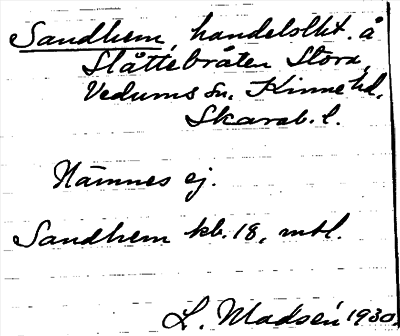 Sandhem, handelslht. å
Slåttebråten Stora,
Vedums sn. Kinne hd.
Skarab. l.
Nämnes ej.
Sandhem kb. 18, mtl.
L. Madsén 1930.